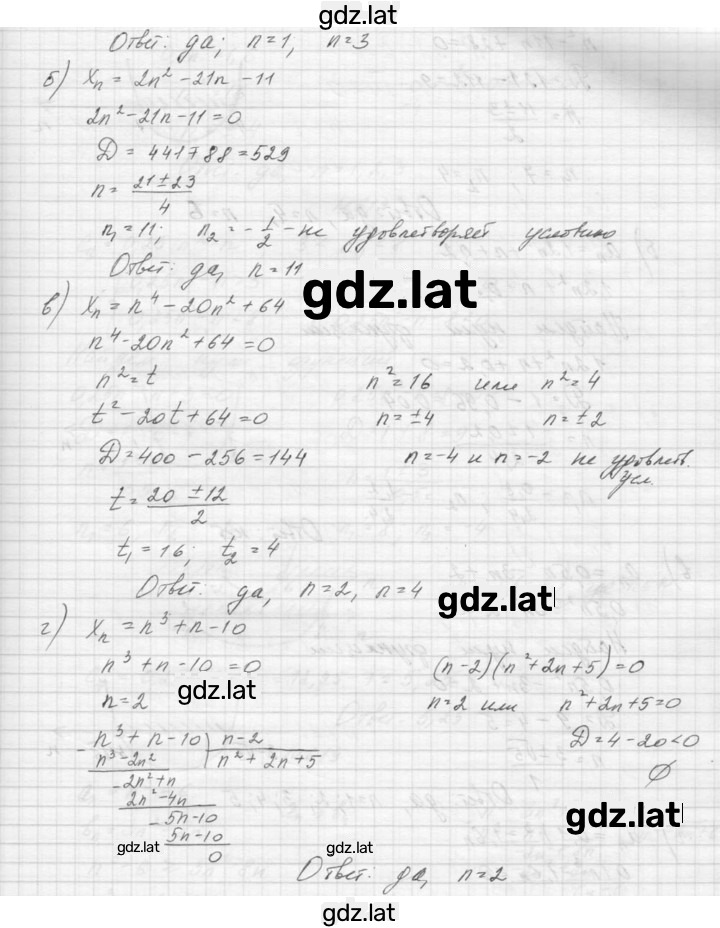 gdz.lat
Ответ: да; n=1, n=3
б) xₙ = 2n² -21n -11
2n² -21n -11 = 0
D = 441788 = 529
n = (21 ± 23)/4
n₁ = 11; n₂ = -1/2 - не удовлетворяет условию
Ответ: да, n = 11
gdz.lat
в) xₙ = n⁴ - 20n² + 64
n⁴ - 20n² + 64 = 0
n² = t
t² - 20t + 64 = 0
D = 400 - 256 = 144
t = (20 ± 12)/2
t₁ = 16; t₂ = 4
n² = 16 или n² = 4
n = ±4 n = ±2
n = -4 и n = -2 не удовлетв.
усл.
Ответ: да, n = 2, n = 4
gdz.lat
г) xₙ = n³ + n - 10
n³ + n - 10 = 0
n = 2
gdz.lat
- n³ + n - 10 | n - 2
n³ - 2n² | n² + 2n + 5
- 2n² + n
2n² - 4n
- 5n - 10
5n - 10
0
(n - 2)(n² + 2n + 5) = 0
n = 2 или n² + 2n + 5 = 0
D = 4 - 20 < 0
∅
gdz.lat
gdz.lat
gdz.lat
Ответ: да, n = 2
gdz.lat